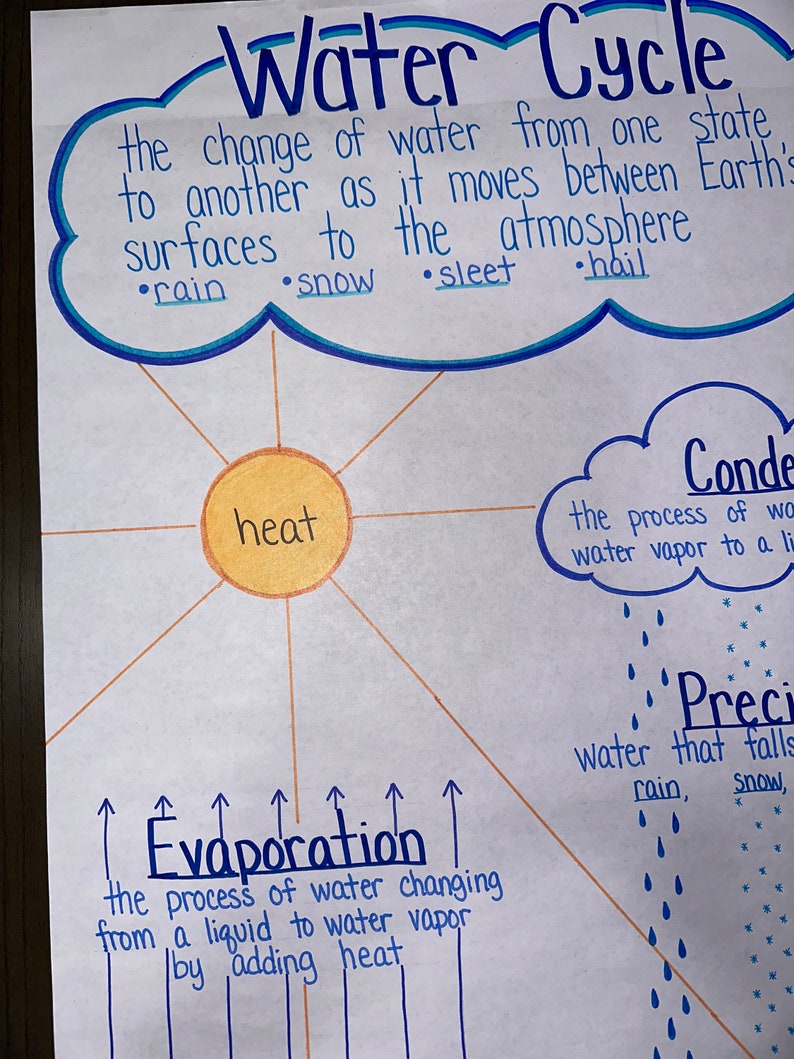 Water Cycle
the change of water from one state
to another as it moves between Earth's
surfaces to the atmosphere
•rain •snow •sleet •hail
heat
the process of
water vapor to a
water that falls
rain, snow,
Evaporation
the process of water changing
from a liquid to water vapor
by adding heat